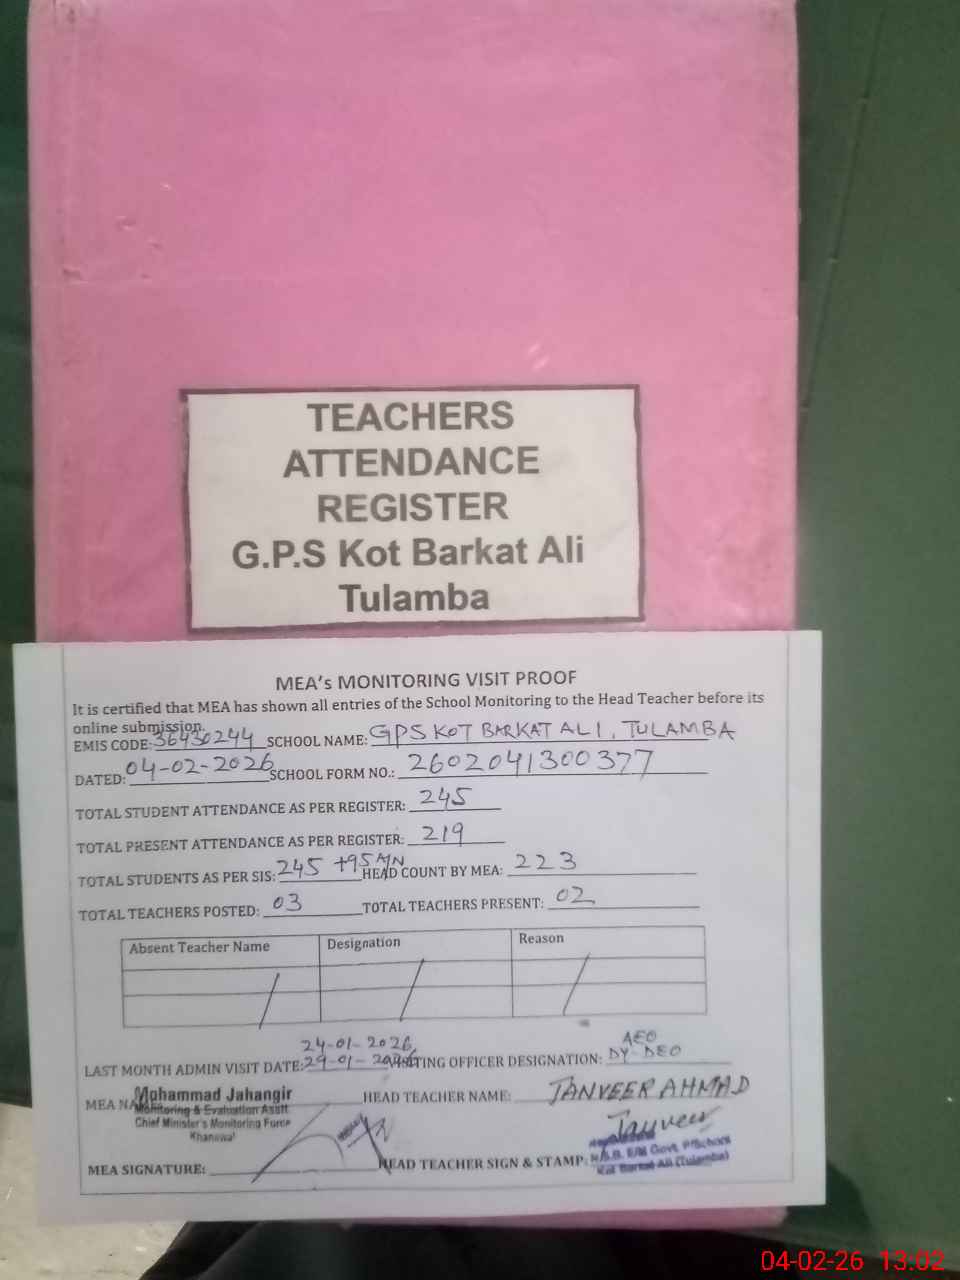 TEACHERS
ATTENDANCE
REGISTER
G.P.S Kot Barkat Ali
Tulamba
MEA's MONITORING VISIT PROOF
It is certified that MEA has shown all entries of the School Monitoring to the Head Teacher before its
online submission.
EMIS CODE: 36430244 SCHOOL NAME: GPS KOT BARKAT ALI, TULAMBA
DATED: 04-02-2026 SCHOOL FORM NO.: 2602041300377
TOTAL STUDENT ATTENDANCE AS PER REGISTER: 245
TOTAL PRESENT ATTENDANCE AS PER REGISTER: 219
TOTAL STUDENTS AS PER SIS: 245 +95 HEAD COUNT BY MEA: 223
TOTAL TEACHERS POSTED: 03 TOTAL TEACHERS PRESENT: 02
Absent Teacher Name Designation Reason
24-01-2026 AEO
LAST MONTH ADMIN VISIT DATE: 29-01-2026 VISITING OFFICER DESIGNATION: DY-DEO
Mohammad Jahangir
MEA NAME HEAD TEACHER NAME: TANVEER AHMAD
Monitoring & Evaluation Asstt.
Chief Minister's Monitoring Force
Khanewal
Tanveer
MEA SIGNATURE: HEAD TEACHER SIGN & STAMP:
Govt. P/School
Kot Barkat Ali (Tulamba)
04-02-26 13:02